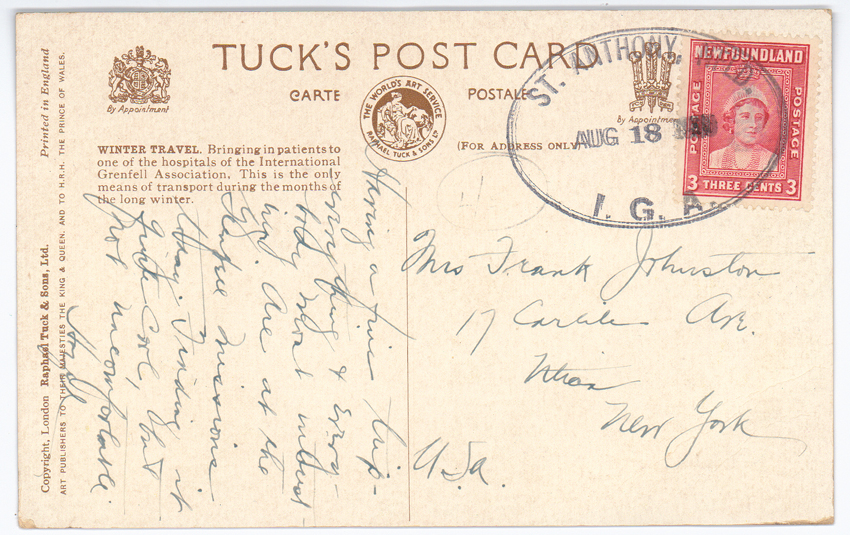 TUCK'S POST CARD
CARTE POSTALE
By Appointment
By Appointment
THE WORLD'S ART SERVICE
RAPHAEL TUCK & SONS LTD
(FOR ADDRESS ONLY)
WINTER TRAVEL. Bringing in patients to
one of the hospitals of the International
Grenfell Association. This is the only
means of transport during the months of
the long winter.
Printed in England
Copyright, London Raphael Tuck & Sons, Ltd.
ART PUBLISHERS TO THEIR MAJESTIES THE KING & QUEEN, AND TO H.R.H. THE PRINCE OF WALES.
NEWFOUNDLAND
POSTAGE
POSTAGE
3 THREE CENTS 3
ST. ANTHONY,
AUG 18
I. G. A.
Having a fine trip-
everything & every-
body most interest-
ing. Are at the
Grenfell Missions
today. Finding it
quite cool, but
not uncomfortable.
Mrs Frank Johnston
17 Ave.
New York
U.S.a.